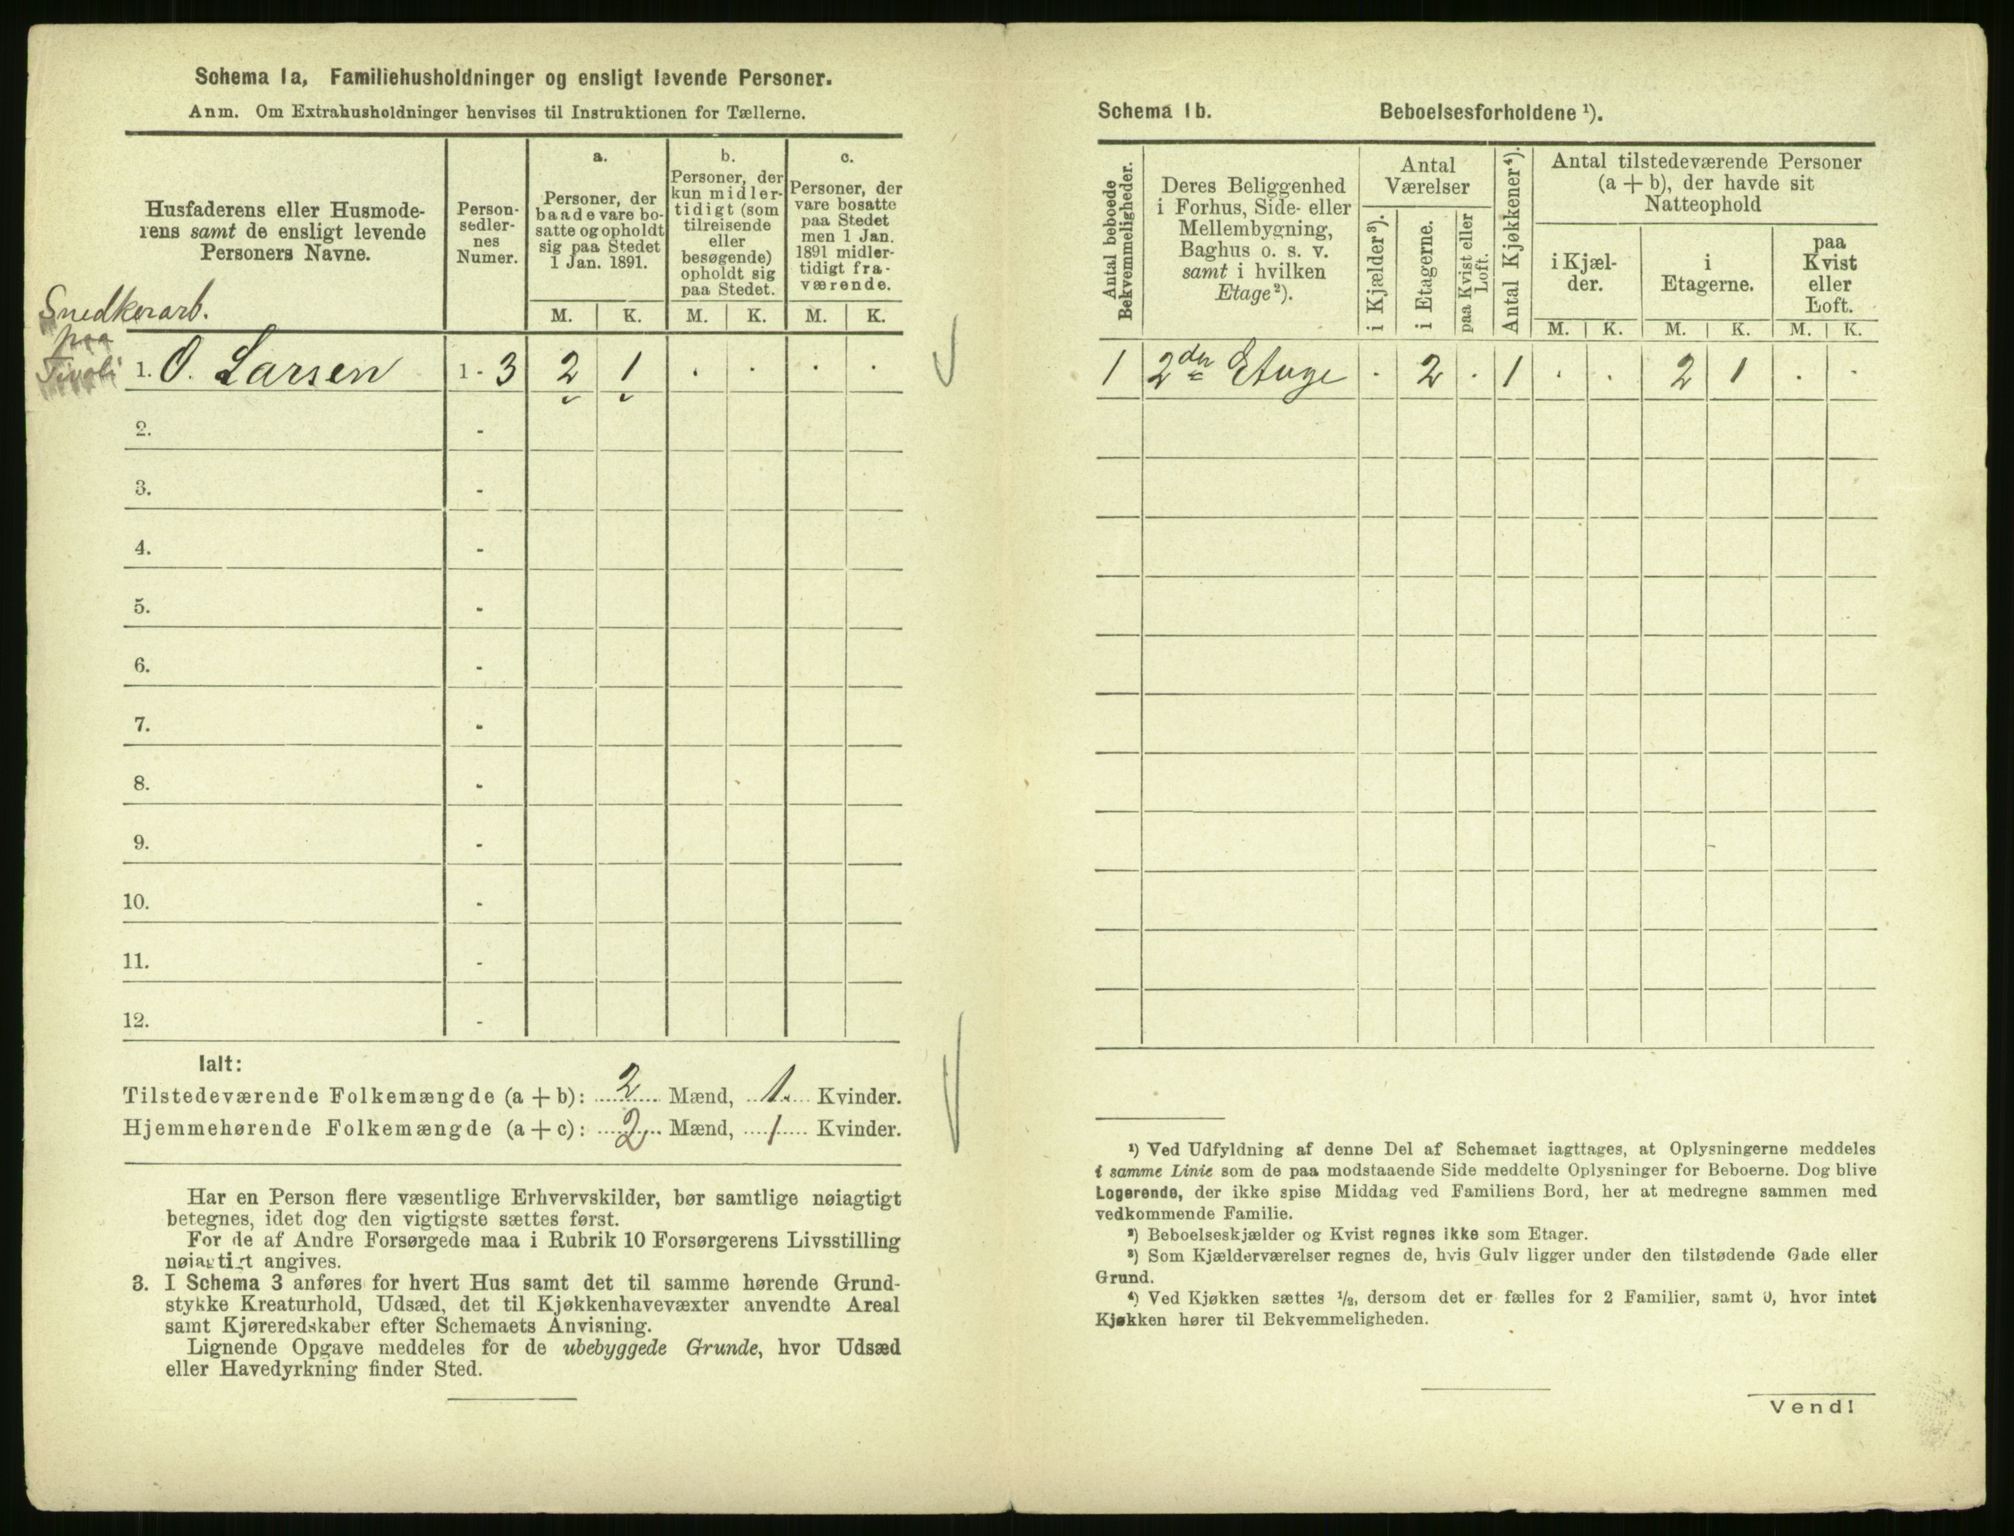 Schema 1a, Familiehusholdninger og ensligt levende Personer.
Anm. Om Extrahusholdninger henvises til Instruktionen for Tællerne.
Husfaderens eller Husmode-
rens samt de ensligt levende
Personers Navne.
Person-
sedler-
nes
Numer.
a.
Personer, der
baade vare bo-
satte og opholdt
sig paa Stedet
1 Jan. 1891.
b.
Personer, der
kun midler-
tidigt (som
tilreisende
eller
besøgende)
opholdt sig
paa Stedet.
c.
Personer, der
vare bosatte
paa Stedet
men 1 Jan.
1891 midler-
tidigt fra-
værende.
M. K. M. K. M. K.
Snedkerarb.
paa
Tivoli
1. O. Larsen 1 - 3 2 1 . . . .
2. -
3. -
4. -
5. -
6. -
7. -
8. -
9. -
10. -
11. -
12. -
Ialt:
Tilstedeværende Folkemængde (a + b): 2 Mænd, 1 Kvinder.
Hjemmehørende Folkemængde (a + c): 2 Mænd, 1 Kvinder.
Har en Person flere væsentlige Erhvervskilder, bør samtlige nøiagtigt
betegnes, idet dog den vigtigste sættes først.
For de af Andre Forsørgede maa i Rubrik 10 Forsørgerens Livsstilling
nøiagtigt angives.
3. I Schema 3 anføres for hvert Hus samt det til samme hørende Grund-
stykke Kreaturhold, Udsæd, det til Kjøkkenhavevæxter anvendte Areal
samt Kjøreredskaber efter Schemaets Anvisning.
Lignende Opgave meddeles for de ubebyggede Grunde, hvor Udsæd
eller Havedyrkning finder Sted.
Schema 1b. Beboelsesforholdene ¹).
Antal beboede
Bekvemmeligheder.
Deres Beliggenhed
i Forhus, Side- eller
Mellembygning,
Baghus o. s. v.
samt i hvilken
Etage²).
Antal
Værelser
i Kjælder³).
i Etagerne.
paa Kvist eller
Loft.
Antal Kjøkkener⁴).
Antal tilstedeværende Personer
(a + b), der havde sit
Natteophold
i Kjæl-
der.
i
Etagerne.
paa
Kvist
eller
Loft.
M. K. M. K. M. K.
1 2den Etage . 2 . 1 . . 2 1 . .
¹) Ved Udfyldning af denne Del af Schemaet iagttages, at Oplysningerne meddeles
i samme Linie som de paa modstaaende Side meddelte Oplysninger for Beboerne. Dog blive
Logerende, der ikke spise Middag ved Familiens Bord, her at medregne sammen med
vedkommende Familie.
²) Beboelseskjælder og Kvist regnes ikke som Etager.
³) Som Kjælderværelser regnes de, hvis Gulv ligger under den tilstødende Gade eller
Grund.
⁴) Ved Kjøkken sættes ½, dersom det er fælles for 2 Familier, samt 0, hvor intet
Kjøkken hører til Bekvemmeligheden.
Vend!